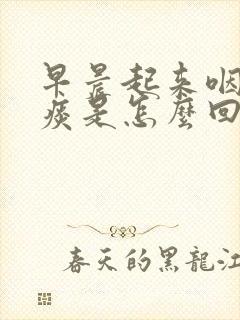 早晨起来咽
痰是怎麼回
春天的黑龍江